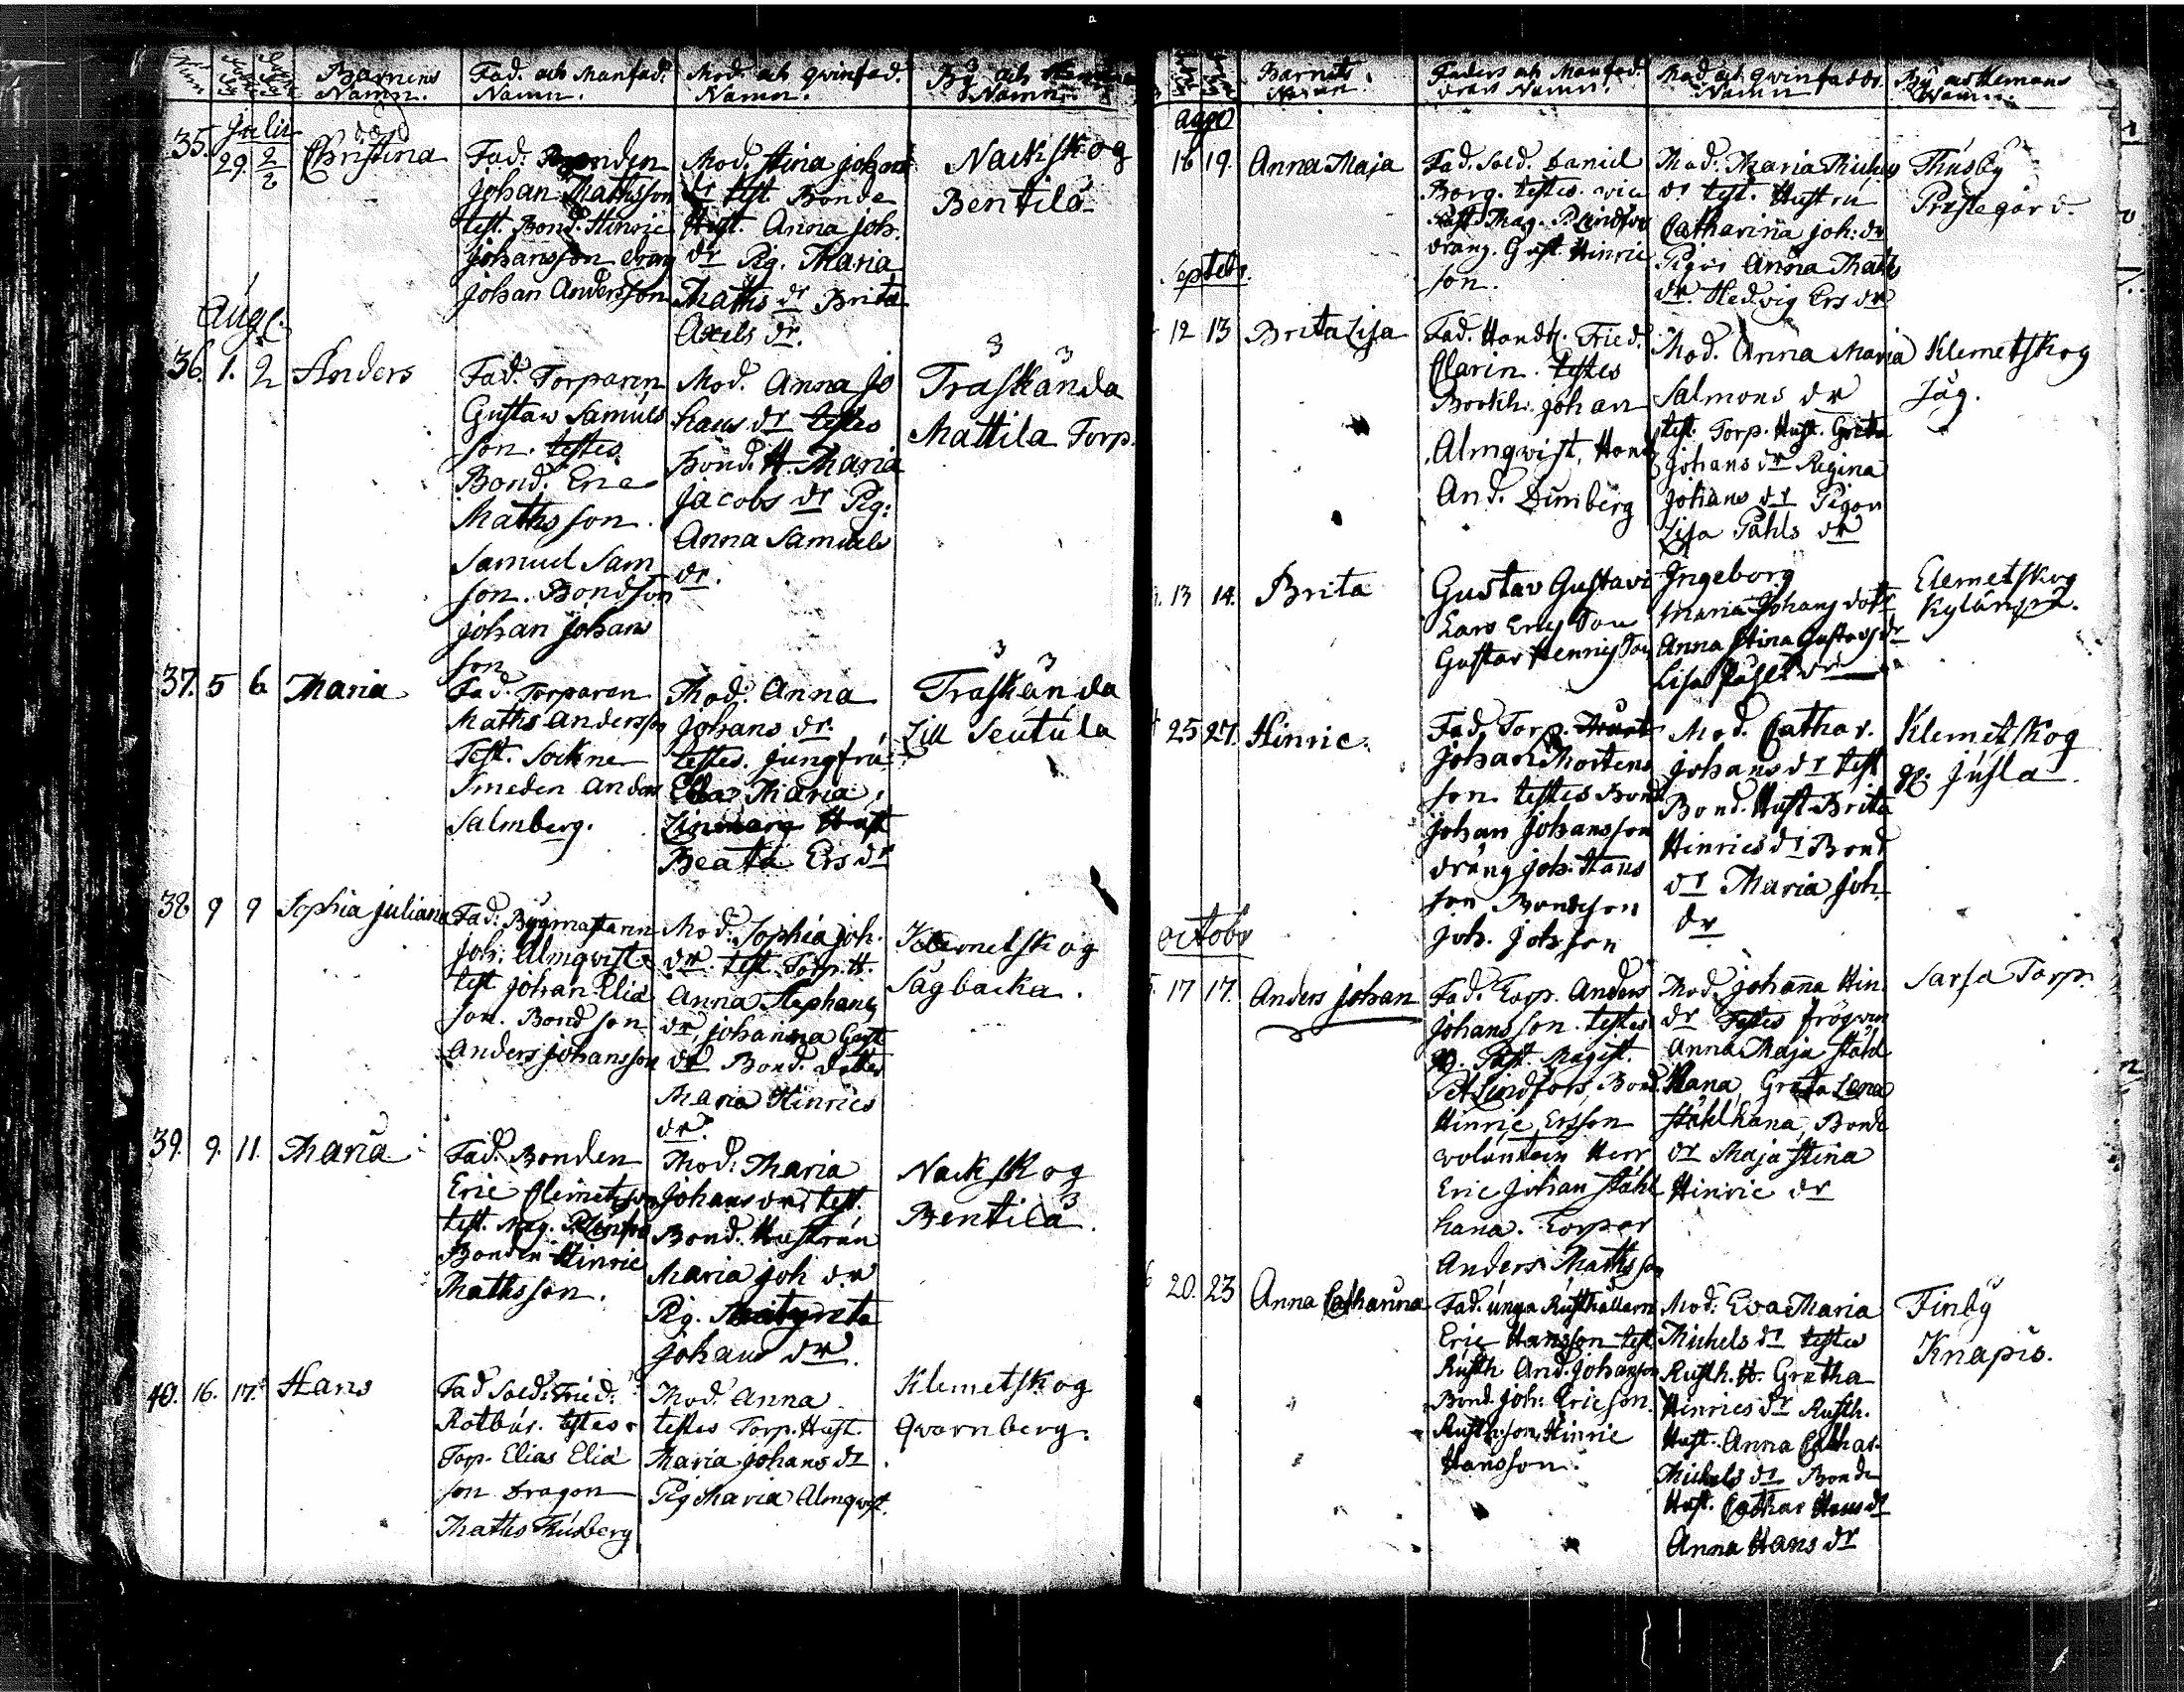 Barnens Namn.
Fad. och Manfad. Namn.
Mod. och qvinfad. Namn.
By och
Namn.
Julii
35. 29. 2/2 Christina
Fad. Bonden
Johan Mathsson
test. Bond. Hinric
Johansson dräng
Johan Andersson
Mod. Stina Johans
dr test. Bonde
Hust. Anna Joh.
dr Pig. Maria
Maths dr Brita
Axels dr.
Nackskog
Bentilä
Aug.
36. 1. 2 Anders
Fad. Torparen
Gustaw Samuls
son. testes
Bond. Eric
Mathsson.
Samuel Sam
son. Bondson
Johan Johans
son
Mod. Anna Jo
hans dr testes
Bond. H. Maria
Jacobs dr Pig:
Anna Samuels
dr.
Träskända
Mattila Torp.
37. 5 6 Maria
Fad. Torparen
Maths Andersson
Test. Sockne
Smeden Anders
Salmberg.
Mod. Anna
Johans dr.
testes. Jungfru
Ebba Maria
Hust
Beata Ers dr
Träskända
Lill Seutula
38 9 9 Sophia Juliana
Fad: Bygmästaren
Joh: Almqvist
test Johan Elia
son. Bondson
Anders Johansson
Mod: Sophia Joh.
dr. test. Torp. H.
Anna Stephans
dr, Johanna Gust
dr Bond. dotter
Maria Hinrics
dr.
Klemetskog
Sågbacka.
39. 9. 11. Maria
Fad. Bonden
Eric Clemetsson
test. Mag.
Bonden Hinric
Mathsson.
Mod: Maria
Johans dr, test.
Bond. Hustrun
Maria Joh dr
Pig.
Johans dr.
Nackskog
Bentilä.
40. 16. 17. Hans
Fad Sold: Fried:
Rotbär. testes
Torp. Elias Elia
son Dragon
Maths Thusberg
Mod. Anna
testes Torp. Hust.
Maria Johans dr
Pig Maria Almqvist.
Klemetskog
Qvarnberg.
Barnets Namn.
Faders och Manfad
drars Namn.
Mod och qvinfaddr.
Namn
By och Hemans
Namn.
Aug
16 19. Anna Maja
Fad. Sold. Daniel
Borg. testes. vice
Past. Mag. P. Lindfors
dräng. Gust. Hinric
son.
Mod. Maria Michels
dr test. Hustru
Catharina Joh: dr
Pigor Anna Maths
dr. Hedvig Ers dr
Thusby
Prestegård.
Septebr.
12 13 Brita Lisa
Fad. Handtl. Fried.
Clarin. testes
Bockh. Johan
Almqvist, Handl
And. Dunberg
Mod. Anna Maria
Salmons dr
test. Torp. Hust. Greta
Johans dr Regina
Johans dr Pigan
Lisa Påhls dr
Klemetskog
Såg.
13 14. Brita
Gustav Gustavi
Lars Ericsson
Gustav Hennisson
Ingeborg
Maria Johans dott
Anna Stina Gustavs dr
Lisa Påhls dr
Clemetskog
Kylänpä.
25 27. Hinric.
Fad. Torp.
Johan Mortens
son testes Bond
Johan Johansson
dräng Joh. Hans
son Bondeson
Joh. Johsson
Mod. Cathar.
Johans dr test
Bond. Hust. Brita
Hinrics dr Bond
dr Maria Joh.
dr
Klemetskog
Jusla.
Octobr
17 17. Anders Johan
Fad. Torp. Anders
Johansson. testes
Past. Magist.
Pet Lindfors, Bond.
Hinric Ersson
volontain Herr
Eric Johan Stål
hana. Torpar
Anders Mathsson
Mod. Johanna Hin
dr Testes frögden
Anna Maja Stål
Hana, Greta Lena
Stålhana, Bonde
dr Maja Stina
Hinric dr
Sarsa Torp.
20. 23 Anna Catharina
Fad. unga Rusthållarn
Eric Hansson test.
Rusth. And. Johansson
Bond. Joh: Ericson.
Rusth. son Hinric
Hansson.
Mod: Eva Maria
Michels dr testes
Rusth. H. Gretha
Hinrics dr Rusth.
Hust. Anna Cathar.
Michels dr Bonde
Hust. Cathar Hans dr
Anna Hans dr
Finby
Knapis.